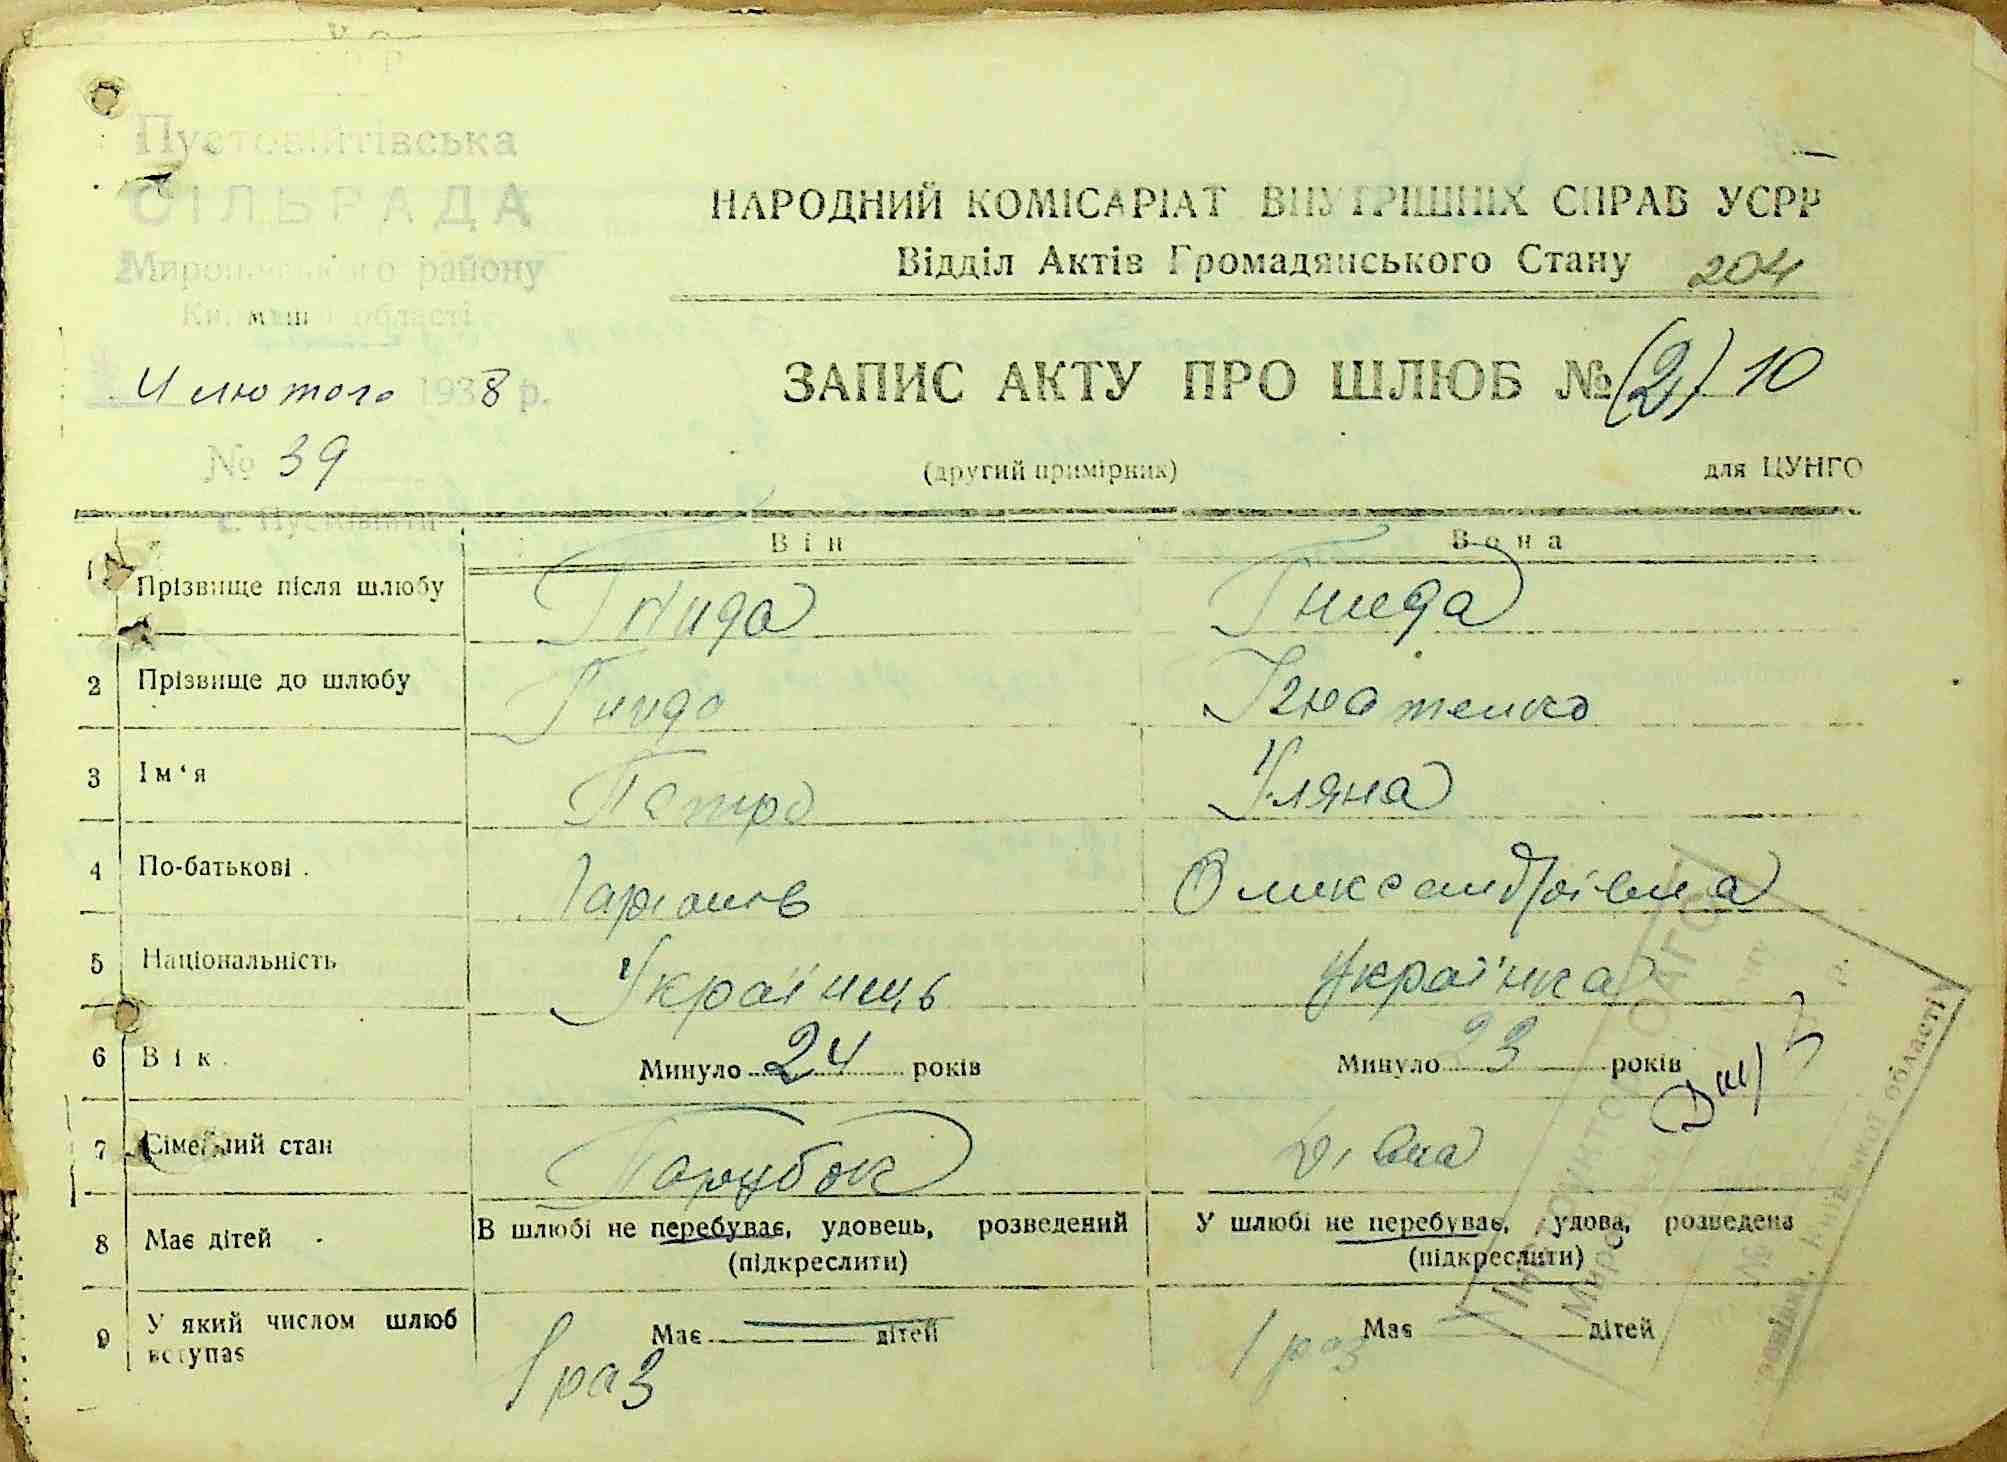 Пустовитівська
СІЛЬРАДА
Миронівського району
Київської області
4 лютого 1938 р.
№ 39
с. Пустовіти
НАРОДНИЙ КОМІСАРІАТ ВНУТРІШНІХ СПРАВ УСРР
Відділ Актів Громадянського Стану 204
ЗАПИС АКТУ ПРО ШЛЮБ № (2) 10
(другий примірник) для ЦУНГО
Він Вона
1 Прізвище після шлюбу Гнида Гнида
2 Прізвище до шлюбу Гнида Ігнатенко
3 Ім'я Петро Уляна
4 По-батькові Олександрівна
5 Національність Українець Українка
6 Вік Минуло 24 років Минуло 23 років
7 Сімейний стан Парубок Дівка
8 Має дітей В шлюбі не перебуває, удовець, розведений У шлюбі не перебуває, удова, розведена
(підкреслити) (підкреслити)
9 У який числом шлюб вступає Має дітей Має дітей
1 раз 1 раз
області